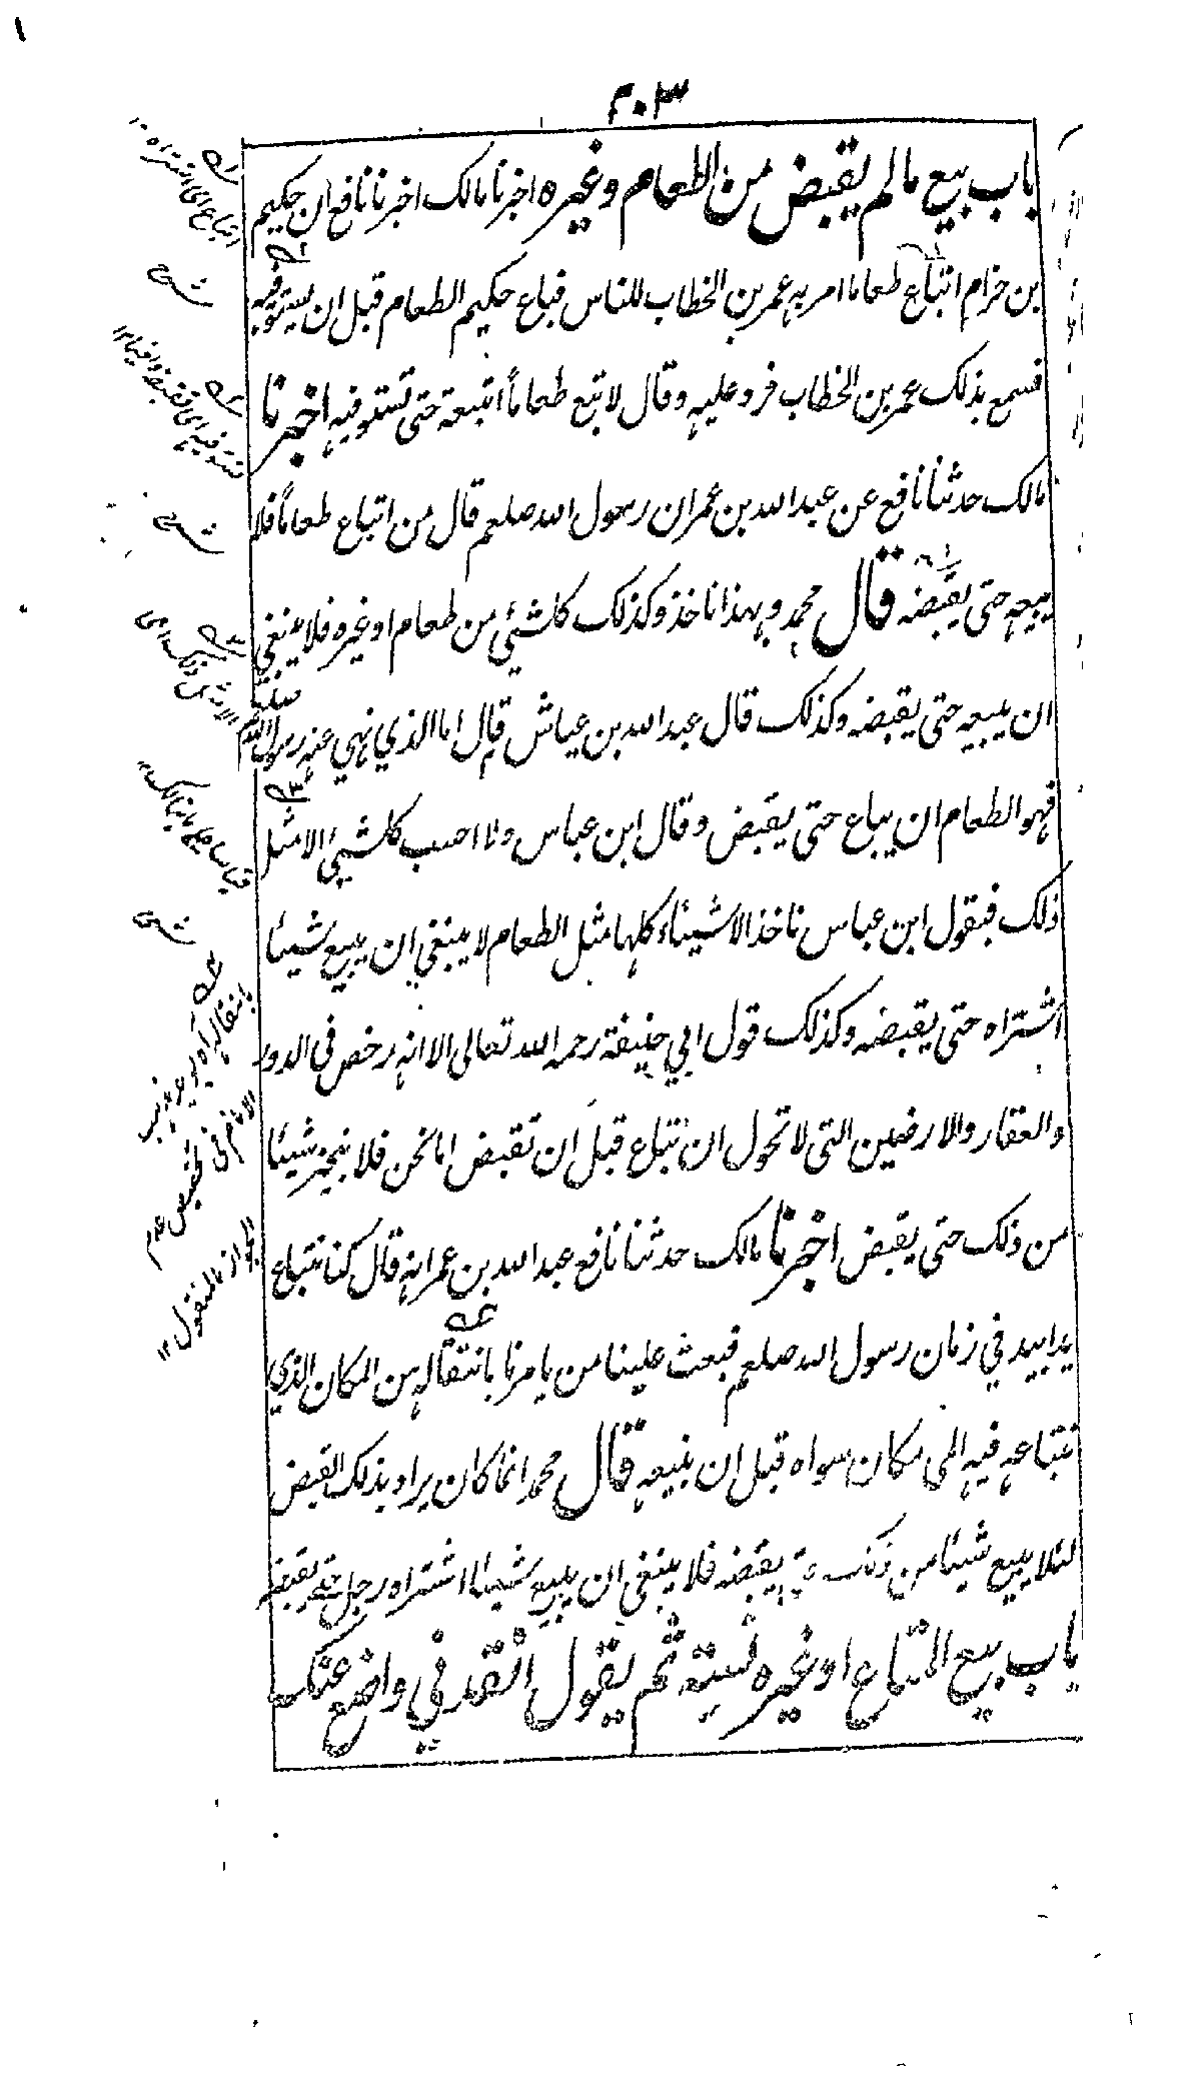 ٣٠٣
باب بيع مالم يقبض من الطعام وغيره اخبرنا مالك اخبرنا نافع ان حكيم
بن حزام ابتاع طعاما امر به عمر بن الخطاب للناس فباع حكيم الطعام قبل ان يستوفيه
فسمع بذلك عمر بن الخطاب فرد عليه وقال لا تبع طعاماً ابتعته حتى تستوفيه اخبرنا
مالك حدثنا نافع عن عبدالله بن عمر ان رسول الله صلعم قال من ابتاع طعاماً فلا
يبيعه حتى يقبضه قال محمد وبهذا ناخذ وكذلك كل شيئ من طعام او غيره فلا ينبغي
ان يبيعه حتى يقبضه وكذلك قال عبدالله بن عباس قال اما الذي نهي عنه رسول الله صلعم
فهو الطعام ان يباع حتى يقبض وقال ابن عباس ولا احسب كل شيئ الا مثل
ذلك فبقول ابن عباس ناخذ الاشياء كلها مثل الطعام لا ينبغي ان يبيع شيئا
اشتراه حتى يقبضه وكذلك قول ابي حنيفة رحمه الله تعالى الا انه رخص في الدور
والعقار والارضين التي لا تحول ان تباع قبل ان تقبض اما نحن فلا نجيز شيئا
من ذلك حتى يقبض اخبرنا مالك حدثنا نافع عبدالله بن عمر انه قال كنا نبتاع
في زمان رسول الله صلعم فبعث علينا من يامرنا بانتقاله من المكان الذي
نبتاعه فيه الى مكان سواه قبل ان نبيعه قال محمد انما كان يراد بذلك القبض
لئلا يبيع شيئا من ذلك حتى يقبضه فلا ينبغي ان يبيع شيئا اشتراه رجل حتى يقبضه
باب بيع المتاع او غيره نسيئة ثم يقول انقدني واضع عنك
ابتاع اى اشتراه ١٢
شرح
تستوفيه اى تقبضه
شرح